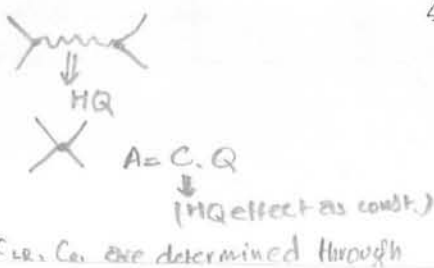 4
HQ
A = C. Q
(HQ effect as const.)
are determined through